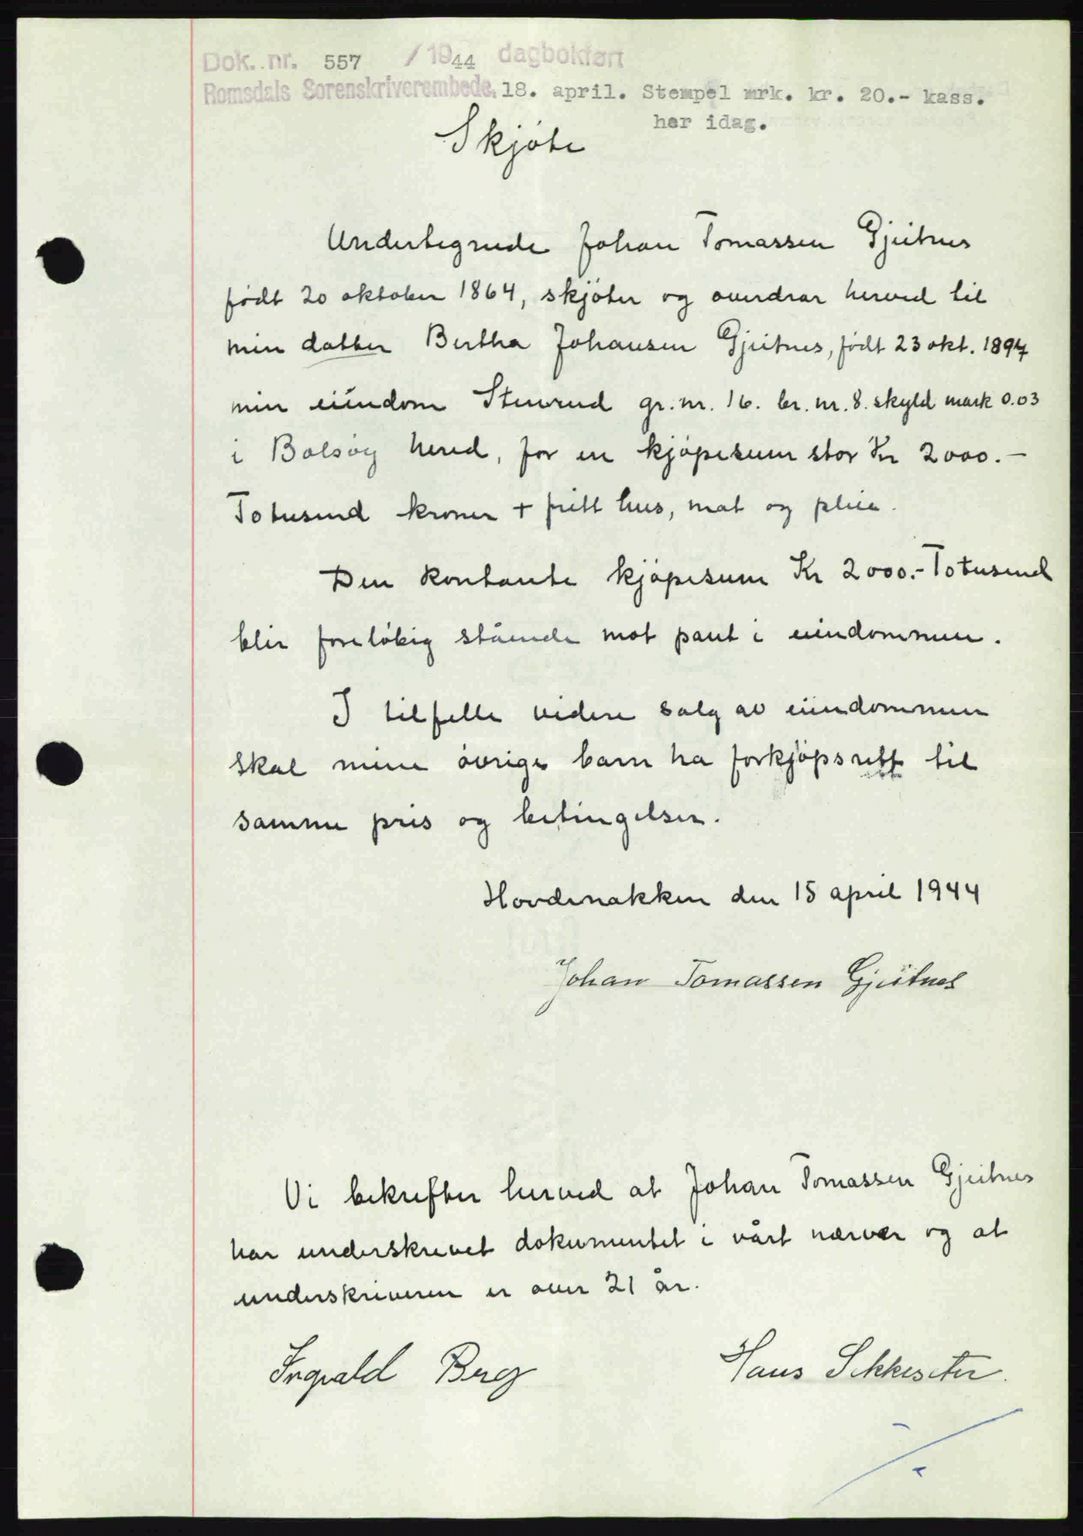 Dok. nr. 557 / 1944 dagbokført
Romsdals Sorenskriverembede, 18. april. Stempel mrk. kr. 20.- kass.
her idag.
Skjöte
Undertegnede Johan Tomassen Gjeitnes
født 20 oktober 1864, skjöter og overdrar herved til
min datter Bertha Johansen Gjeitnes, født 23 okt. 1894
min eiendom Stenrud gr. nr. 16. br. nr. 8. skyld mark 0.03
i Bolsøy herred, for en kjöpesum stor Kr 2000.-
Totusend kroner + fritt hus, mat og pleie.
Den kontante kjöpesum Kr 2000.- Totusend
blir forelöbig stående mot pant i eiendommen.
I tilfelle videre salg av eiendommen
skal mine övrige barn ha forkjöpsrett til
samme pris og betingelser.
Hovdenakken den 15 april 1944
Johan Tomassen Gjeitnes
Vi bekrefter herved at Johan Tomassen Gjeitnes
har underskrevet dokumentet i vårt nærvær og at
underskriveren er over 21 år.
Ingvald Berg Hans Sekkeseter